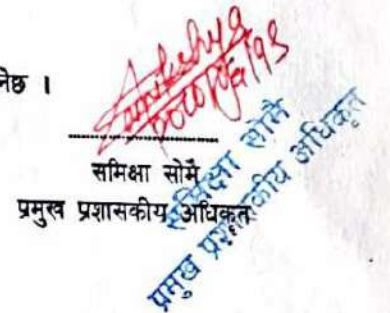 नेछ ।
Samikshya
समिक्षा सोमै
प्रमुख प्रशासकीय अधिकृत
समिक्षा सोमै
प्रमुख प्रशासकीय अधिकृत